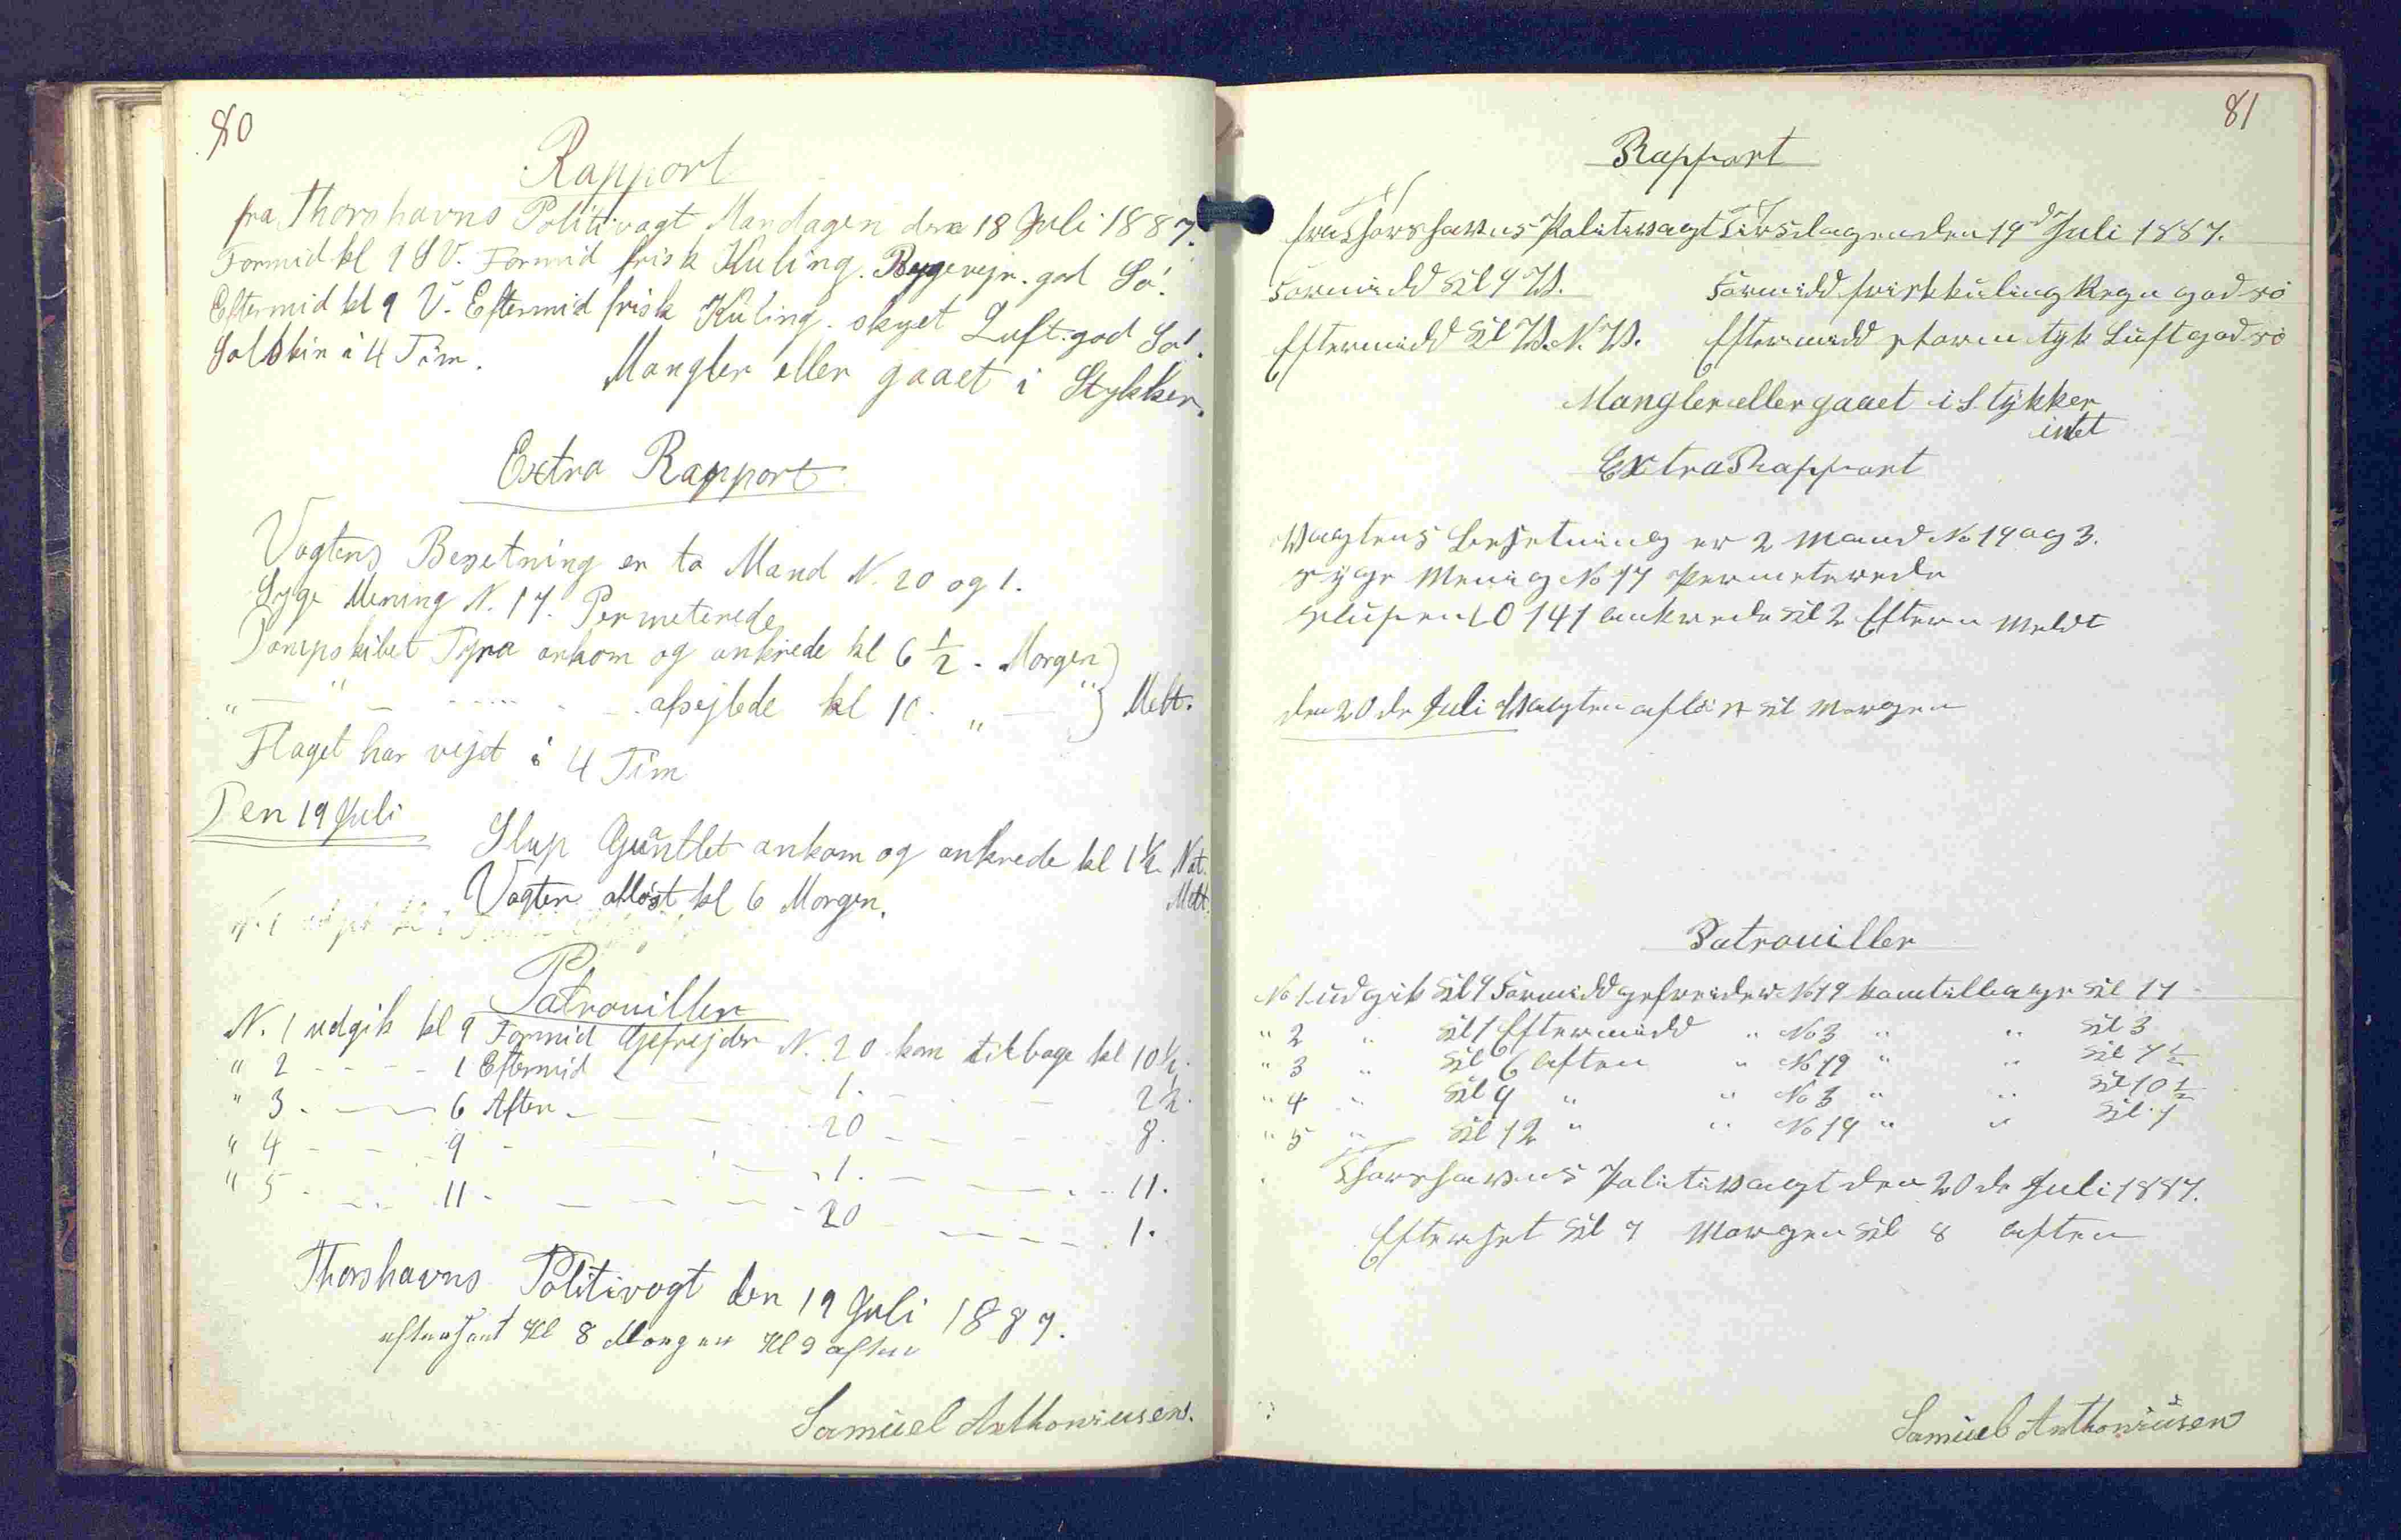 80
Rapport
fra Thorshavns Politivagt Mandagen den 18 Juli 1887.
Formid kl 9 SV. Formid frisk Kuling. Bygevejr. god Sö.
Eftermid kl 9 V. Eftermid frisk Kuling. skyet Luft. god Sö.
Solskin i 4 Tim.
Mangler eller gaaet i Stykker.
Extra Rapport
Vagtens Besetning er to Mand N. 20 og 1.
Syge Mening N. 17. Permeterede
Dampskibet Tyra ankom og ankrede kl 6 1/2 - Morgen
" — " — afsejlede kl 10 " — " Meldt.
Flaget har vejet i 4 Tim
Den 19 Juli
Slup Gäntlet ankom og ankrede kl 1 1/2 Nat.
Vagten aflöst kl 6 Morgen. Meldt.
Patrouiller
N. 1 udgik kl 9 Formid Gefrejder N. 20 kom tilbage kl 10 1/2.
" 2 - - - - 1 Eftermid - - 1. - - 2 1/2.
" 3. — 6 Aften - - 20 - - 8.
" 4 - - 9 - - 1. - - 11.
" 5 - - 11 - - 20 - - 1.
Thorshavns Politivagt den 19 Juli 1887.
efterset Kl 8 Morgen Kl 9 aften
Samuel Anthoniusen.
81
Rapport
fra Thorshavns Politivagt Tirsdagen den 19d Juli 1887.
Formidd Kl 9 V. Formidd frisk kuling Regn god sö
Eftermidd Kl V.N.V. Eftermidd storm tyk Luft god sö
Mangler eller gaaet i Stykker
intet
Extra Rapport
Vagtens Besetning er 2 Mand No 19 og 3.
syge Menig No 17 Permeterede
Slupen LO 141 ankrede Kl 2 Efterm Meldt
den 20 de Juli Vagten aflöst Kl Morgen
Patrouiller
No 1 udgik Kl 9 Formidd gefreider No 19 kom tilbage Kl 11
" 2 " Kl 1 Eftermidd " No 3 " " Kl 3
" 3 " Kl 6 aften " No 19 " " Kl 7 1/2
" 4 " Kl 9 " " No 3 " " Kl 10 1/2
" 5 " Kl 12 " " No 19 " " Kl 1
Thorshavns Politivagt den 20 de Juli 1887.
Efterset Kl 7 Morgen Kl 8 aften
Samuel Anthoniusen